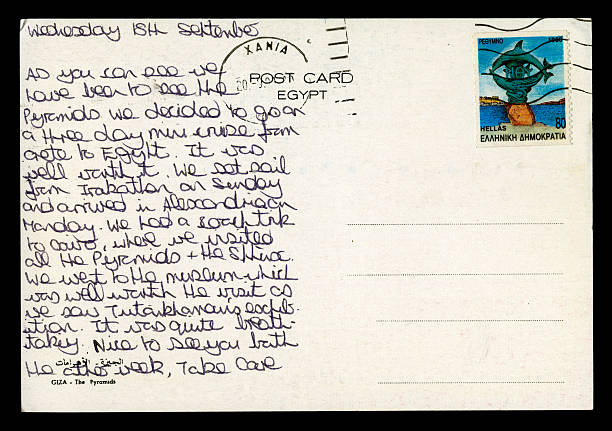 Wednesday 18th September
As you can see we
have been to see the
Pyramids we decided to go on
a three day mini cruise from
Crete to Egypt. It was
well worth it. We set sail
from Iraklion on Sunday
and arrived in Alexandria on
Monday. We had a coach trek
to Cairo, where we visited
all the Pyramids + the Sphinx.
We went to the museum which
was well worth the visit as
we saw Tutankhamun's exhib-
ition. It was quite breath-
taking. Nice to see you both
the other week, Take Care
الجيزة - الأهرامات
GIZA - The Pyramids
ΧΑΝΙΑ
POST CARD
EGYPT
ΡΕΘΥΜΝΟ
HELLAS 80
ΕΛΛΗΝΙΚΗ ΔΗΜΟΚΡΑΤΙΑ